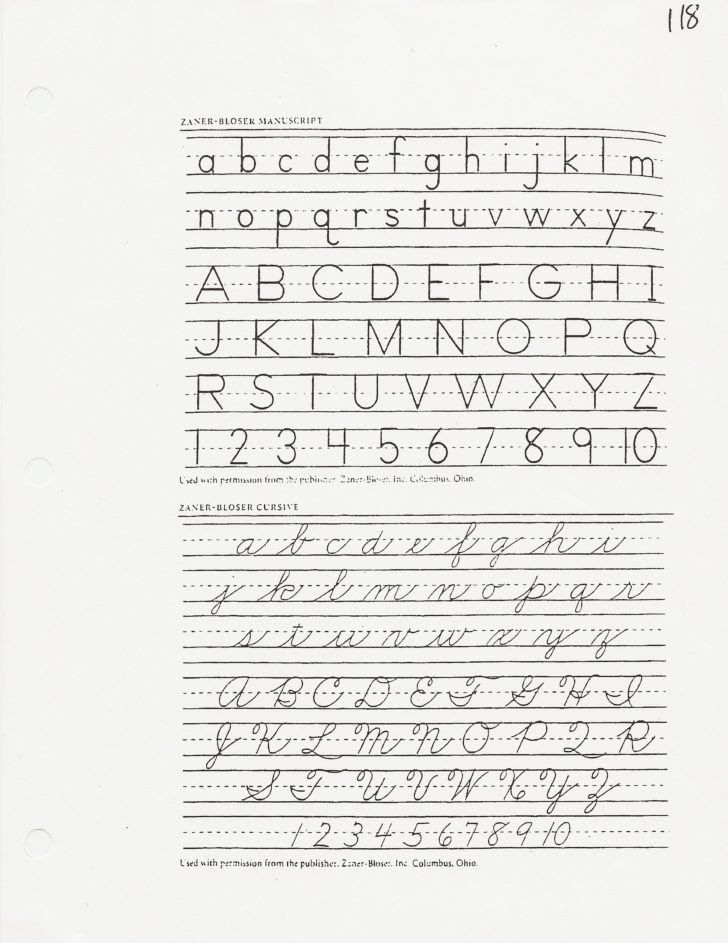 118
ZANER-BLOSER MANUSCRIPT
a b c d e f g h i j k l m
n o p q r s t u v w x y z
A B C D E F G H I
J K L M N O P Q
R S T U V W X Y Z
1 2 3 4 5 6 7 8 9 10
Used with permission from the publisher. Zaner-Bloser, Inc. Columbus, Ohio.
ZANER-BLOSER CURSIVE
a b c d e f g h i
j k l m n o p q r
s t u v w x y z
A B C D E F G H I
J K L M N O P Q R
S T U V W X Y Z
1 2 3 4 5 6 7 8 9 10
Used with permission from the publisher. Zaner-Bloser, Inc. Columbus, Ohio.